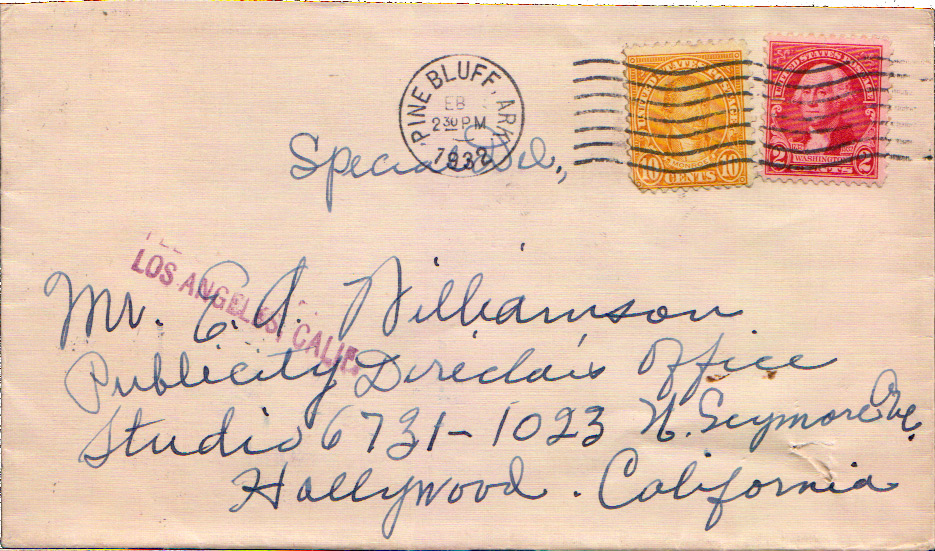 PINE BLUFF, ARK.
FEB
2 30 PM
1932
UNITED STATES POSTAGE
10 CENTS 10
UNITED STATES POSTAGE
WASHINGTON
2 CENTS 2
Special Del.,
LOS ANGELES, CALIF.
Mr. E. A. Williamson
Publicity Director's Office
Studio 6731-1023 N. Seymore Ave.
Hollywood. California